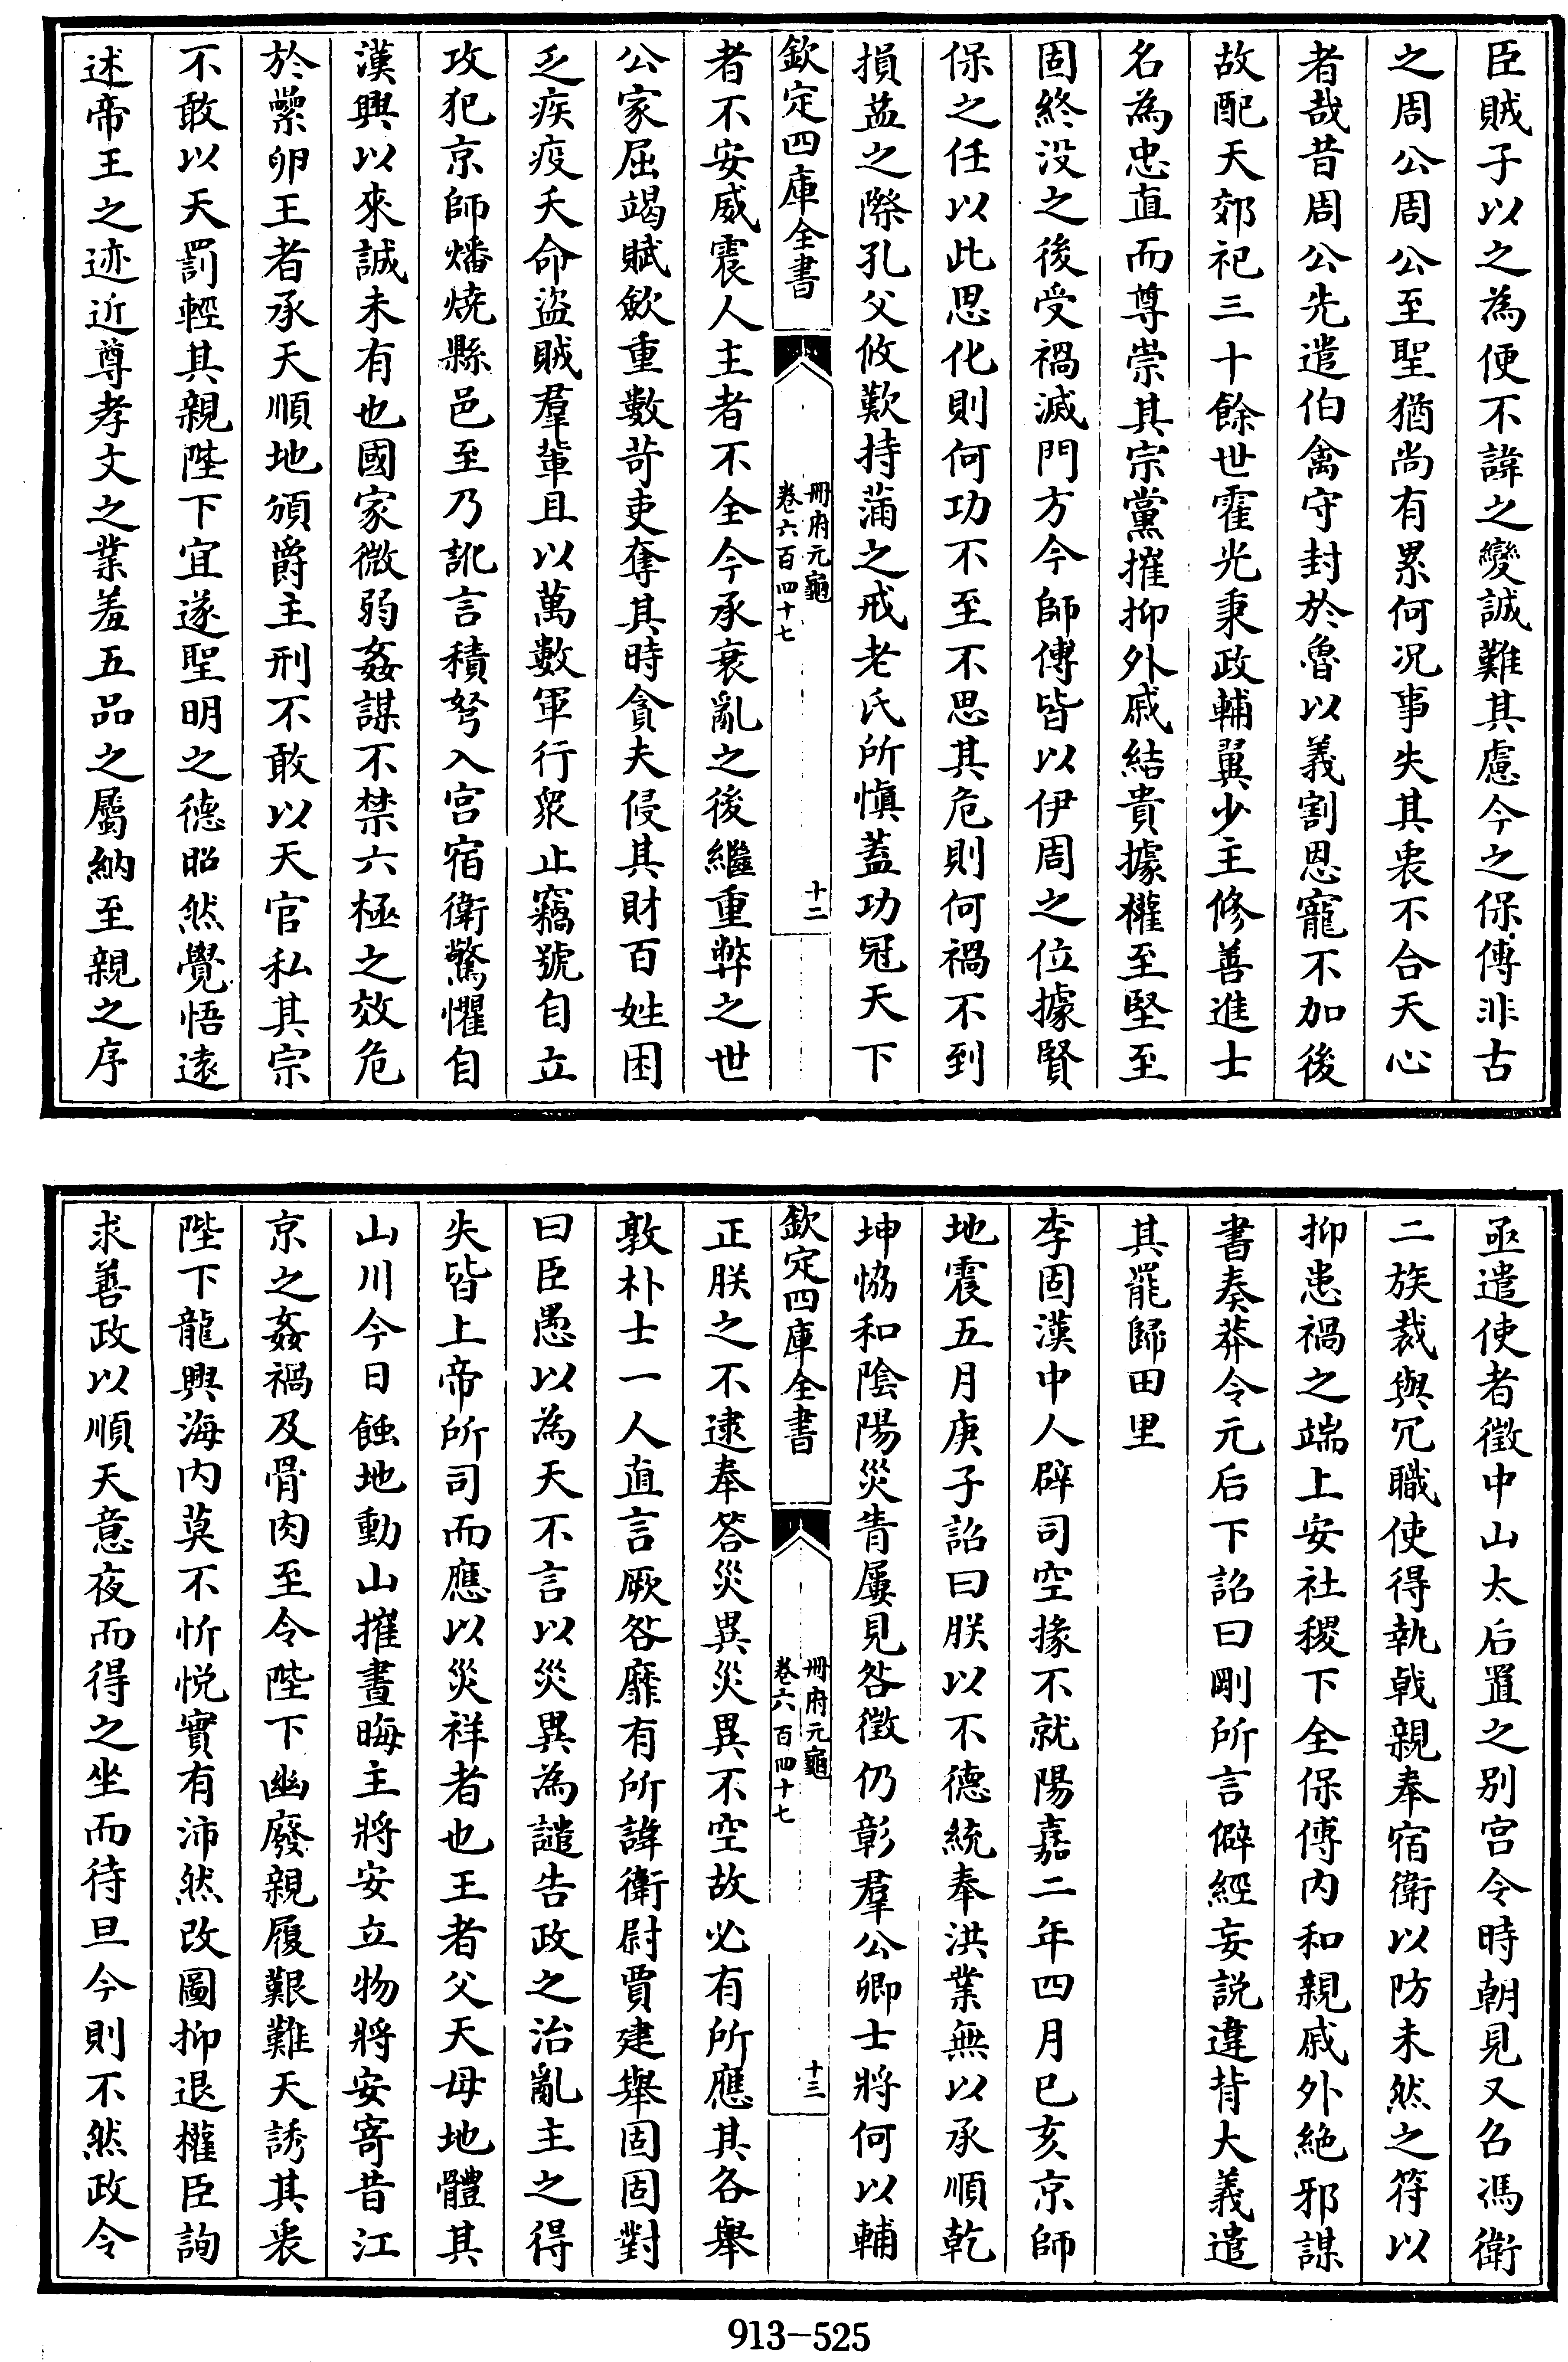 臣賊子以之為便不諱之變誠難其慮今之保傅非古
之周公周公至聖猶尚有累何况事失其衷不合天心
者哉昔周公先遣伯禽守封於魯以義割恩寵不加後
故配天郊祀三十餘世霍光秉政輔翼少主修善進士
名為忠直而尊崇其宗黨摧抑外戚結貴據權至堅至
固終没之後受禍滅門方今師傅皆以伊周之位據賢
保之任以此思化則何功不至不思其危則何禍不到
損益之際孔父攸歎持蒲之戒老氏所慎蓋功冠天下
欽定四庫全書
冊府元龜
卷六百四十七
十二
者不安威震人主者不全今承衰亂之後繼重弊之世
公家屈竭賦斂重數苛吏奪其時貪夫侵其財百姓困
乏疾疫夭命盗賊羣輩且以萬數軍行衆止竊號自立
攻犯京師燔燒縣邑至乃訛言積弩入宫宿衛驚懼自
漢興以來誠未有也國家微弱姦謀不禁六極之效危
於纍卵王者承天順地頒爵主刑不敢以天官私其宗
不敢以天罰輕其親陛下宜遂聖明之德昭然覺悟遠
述帝王之迹近尊孝文之業羞五品之屬納至親之序
亟遣使者徵中山太后置之别宫令時朝見又名馮衛
二族裁與冗職使得執戟親奉宿衛以防未然之符以
抑患禍之端上安社稷下全保傅内和親戚外絶邪謀
書奏莽令元后下詔曰剛所言僻經妄説違背大義遣
其罷歸田里
李固漢中人辟司空掾不就陽嘉二年四月已亥京師
地震五月庚子詔曰朕以不德統奉洪業無以承順乾
坤恊和陰陽災眚屢見咎徵仍彰羣公卿士將何以輔
欽定四庫全書
冊府元龜
卷六百四十七
十三
正朕之不逮奉答災異災異不空故必有所應其各舉
敦朴士一人直言厥咎靡有所諱衛尉賈建舉固固對
曰臣愚以為天不言以災異為譴告政之治亂主之得
失皆上帝所司而應以災祥者也王者父天母地體其
山川今日蝕地動山摧晝晦主將安立物將安寄昔江
京之姦禍及骨肉至令陛下幽廢親履艱難天誘其衷
陛下龍興海内莫不忻悦實有沛然改圖抑退權臣詢
求善政以順天意夜而得之坐而待旦今則不然政令
913-525